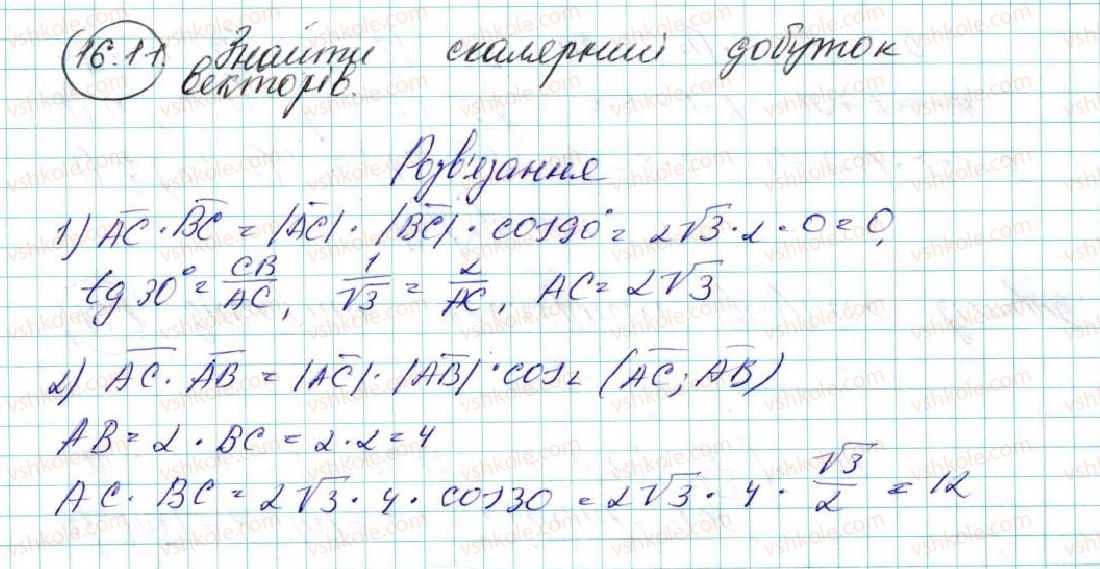 16.11. Знайти скалярний добуток
векторів.
Розв'язання
1) AC · BC = |AC| · |BC| · cos90° = 2√3 · 2 · 0 = 0,
tg 30° = CB/AC, 1/√3 = 2/AC, AC = 2√3
2) AC · AB = |AC| · |AB| · cos∠ (AC; AB)
AB = 2 · BC = 2 · 2 = 4
AC · BC = 2√3 · 4 · cos30 = 2√3 · 4 · √3/2 = 12